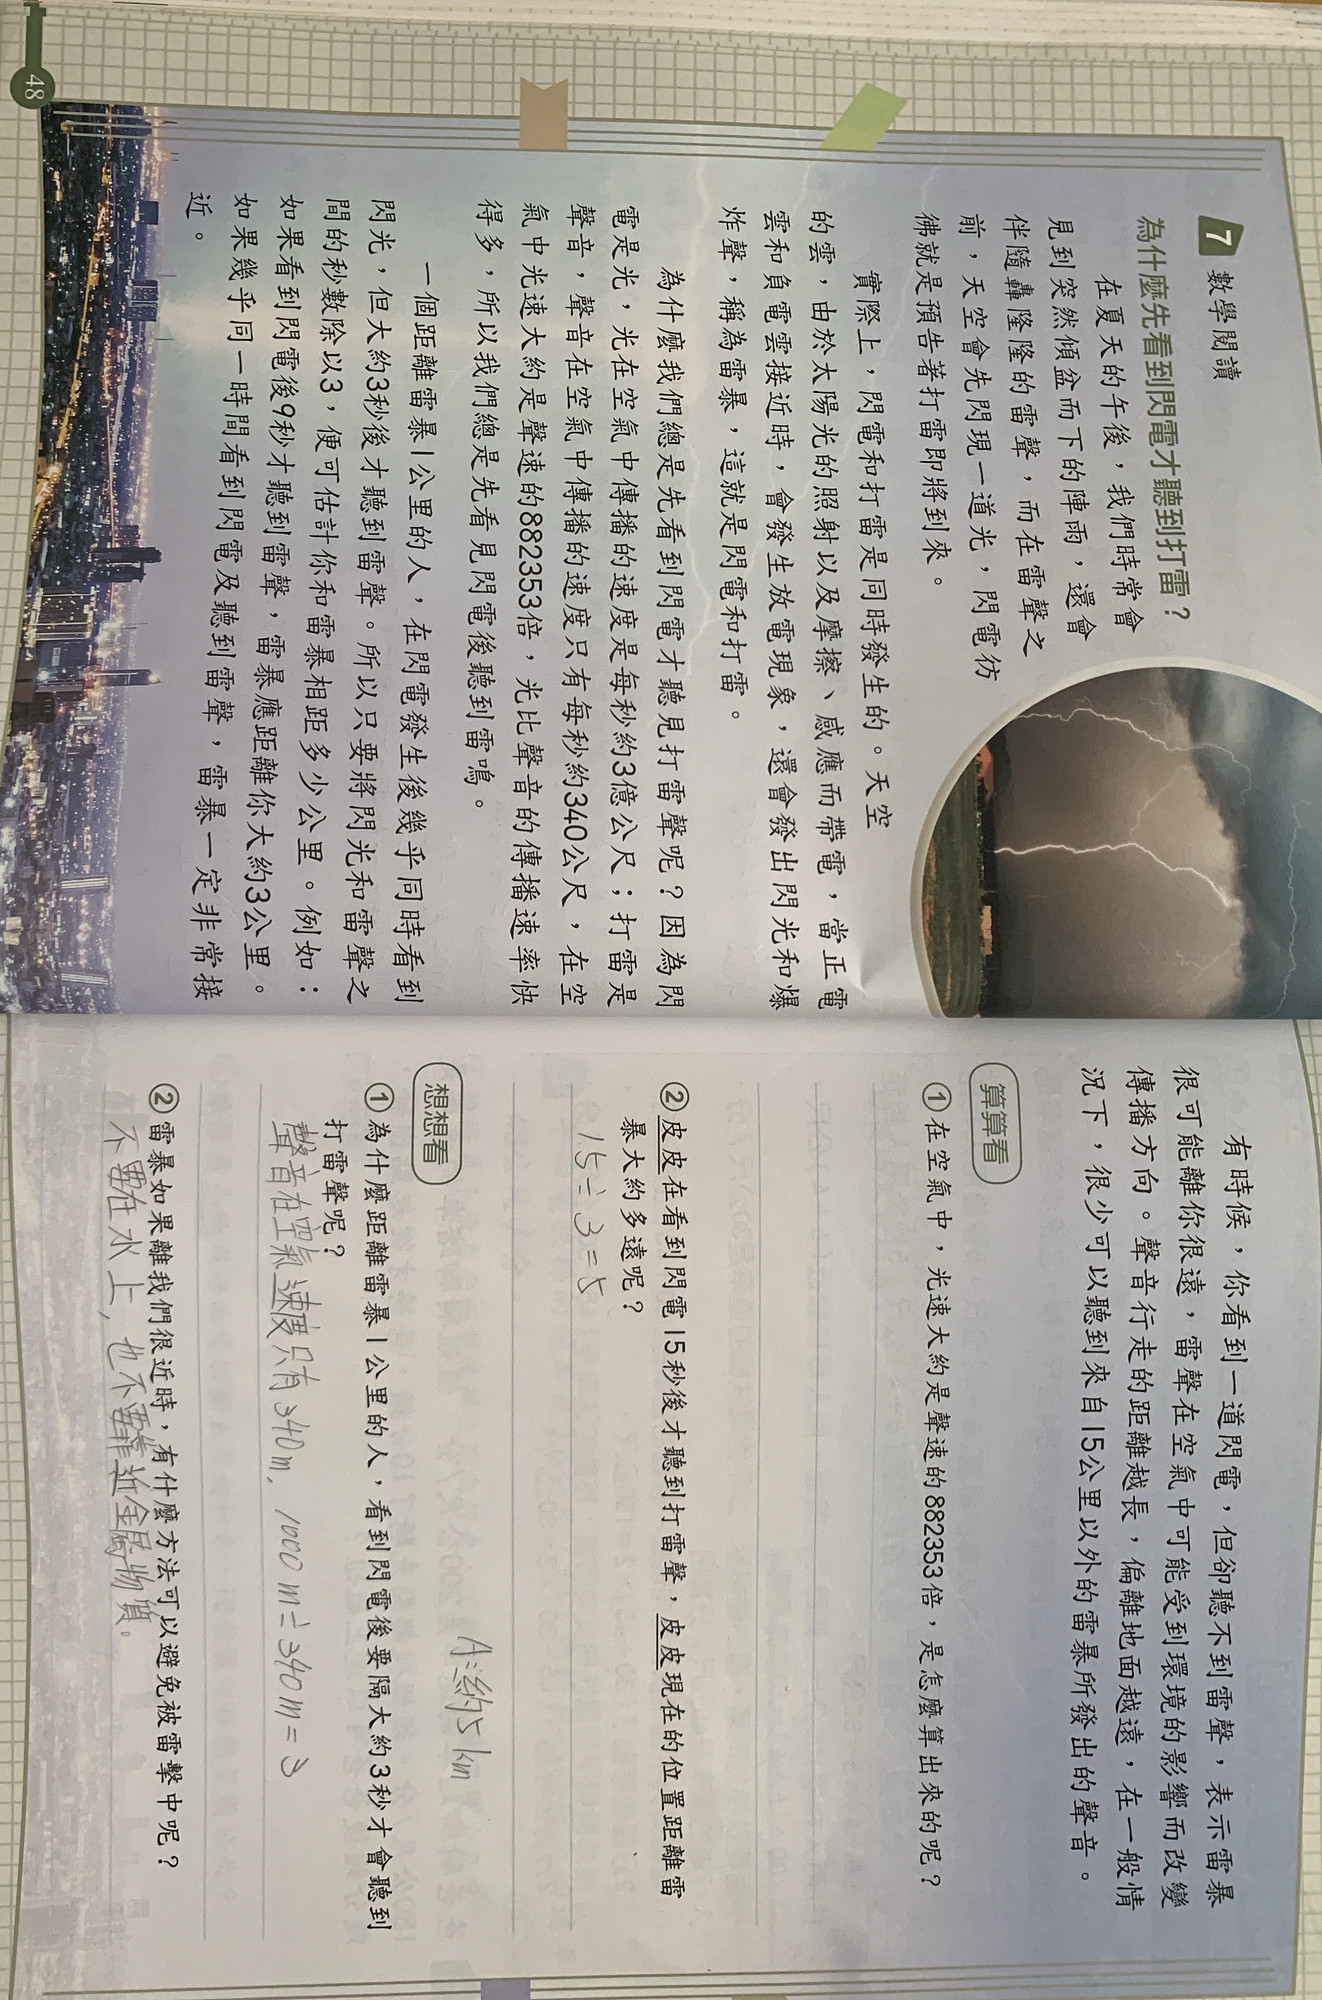 7 數學閱讀
為什麼先看到閃電才聽到打雷？
在夏天的午後，我們時常會
見到突然傾盆而下的陣雨，還會
伴隨轟隆隆的雷聲，而在雷聲之
前，天空會先閃現一道光，閃電彷
彿就是預告著打雷即將到來。
實際上，閃電和打雷是同時發生的。天空
的雲，由於太陽光的照射以及摩擦、感應而帶電，當正電
雲和負電雲接近時，會發生放電現象，還會發出閃光和爆
炸聲，稱為雷暴，這就是閃電和打雷。
為什麼我們總是先看到閃電才聽見打雷聲呢？因為閃
電是光，光在空氣中傳播的速度是每秒約3億公尺；打雷是
聲音，聲音在空氣中傳播的速度只有每秒約340公尺，在空
氣中光速大約是聲速的882353倍，光比聲音的傳播速率快
得多，所以我們總是先看見閃電後聽到雷鳴。
一個距離雷暴1公里的人，在閃電發生後幾乎同時看到
閃光，但大約3秒後才聽到雷聲。所以只要將閃光和雷聲之
間的秒數除以3，便可估計你和雷暴相距多少公里。例如：
如果看到閃電後9秒才聽到雷聲，雷暴應距離你大約3公里。
如果幾乎同一時間看到閃電及聽到雷聲，雷暴一定非常接
近。
48
有時候，你看到一道閃電，但卻聽不到雷聲，表示雷暴
很可能離你很遠，雷聲在空氣中可能受到環境的影響而改變
傳播方向。聲音行走的距離越長，偏離地面越遠，在一般情
況下，很少可以聽到來自15公里以外的雷暴所發出的聲音。
算算看
①在空氣中，光速大約是聲速的882353倍，是怎麼算出來的呢？
②皮皮在看到閃電15秒後才聽到打雷聲，皮皮現在的位置距離雷
暴大約多遠呢？
15÷3=5
A:約5km
想想看
①為什麼距離雷暴1公里的人，看到閃電後要隔大約3秒才會聽到
打雷聲呢？
聲音在空氣速度只有340m，1000m÷340m=3
②雷暴如果離我們很近時，有什麼方法可以避免被雷擊中呢？
不要在水上，也不要靠近金屬物質。